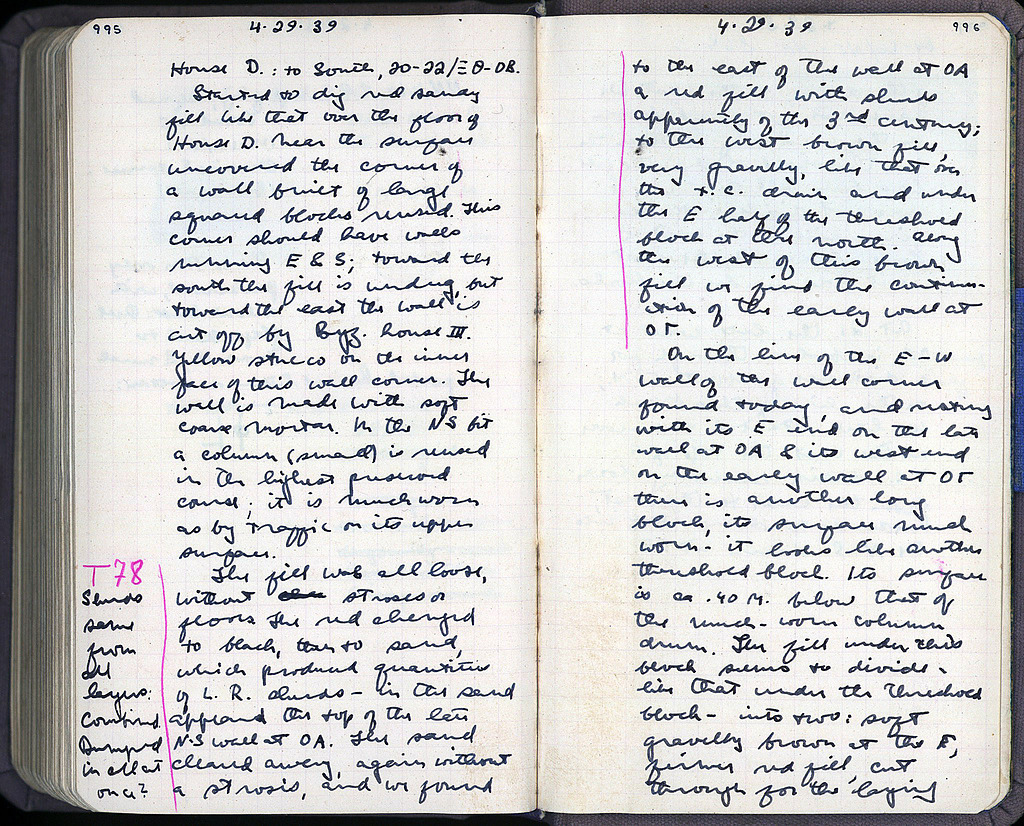 995
4·29·39
House D.: to South, 20-22/ΞΘ-ΟΒ.
Started to dig red sandy
fill like that over the floor of
House D. Near the surface
uncovered the corner of
a wall built of large
squared blocks reused. This
corner should have walls
running E & S; toward the
south the fill is undug, but
toward the east the wall is
cut off by Byz. house III.
Yellow stucco on the inner
face of this wall corner. The
wall is made with soft
coarse mortar. In the NS bit
a column (small) is reused
in the highest preserved
course; it is much worn
as by traffic on its upper
surface.
The fill was all loose,
without stroses or
floors. The red changed
to black, then to sand,
which produced quantities
of L. R. sherds – in the sand
appeared the top of the late
N-S wall at ΟΑ. The sand
cleared away, again without
a strosis, and we found
T 78
Sherds
same
from
all
layers:
Combined.
Dumped
in all at
once?
996
4·29·39
to the east of the wall at ΟΑ
a red fill with sherds
apparently of the 3rd century;
to the west brown fill,
very gravelly, like that over
the t.c. drain and under
the E half of the threshold
block at the north. Along
the west of this brown
fill we find the continu-
ation of the early wall at
ΟΓ.
On the line of the E–W
wall of the wall corner
found today, and resting
with its E end on the late
wall at ΟΑ & its west end
on the early wall at ΟΓ
there is another long
block, its surface much
worn – it looks like another
threshold block. Its surface
is ca .40 M. below that of
the much-worn column
drum. The fill under this
block seems to divide –
like that under the threshold
block – into two: soft
gravelly brown at the E,
firmer red fill, cut
through for the laying